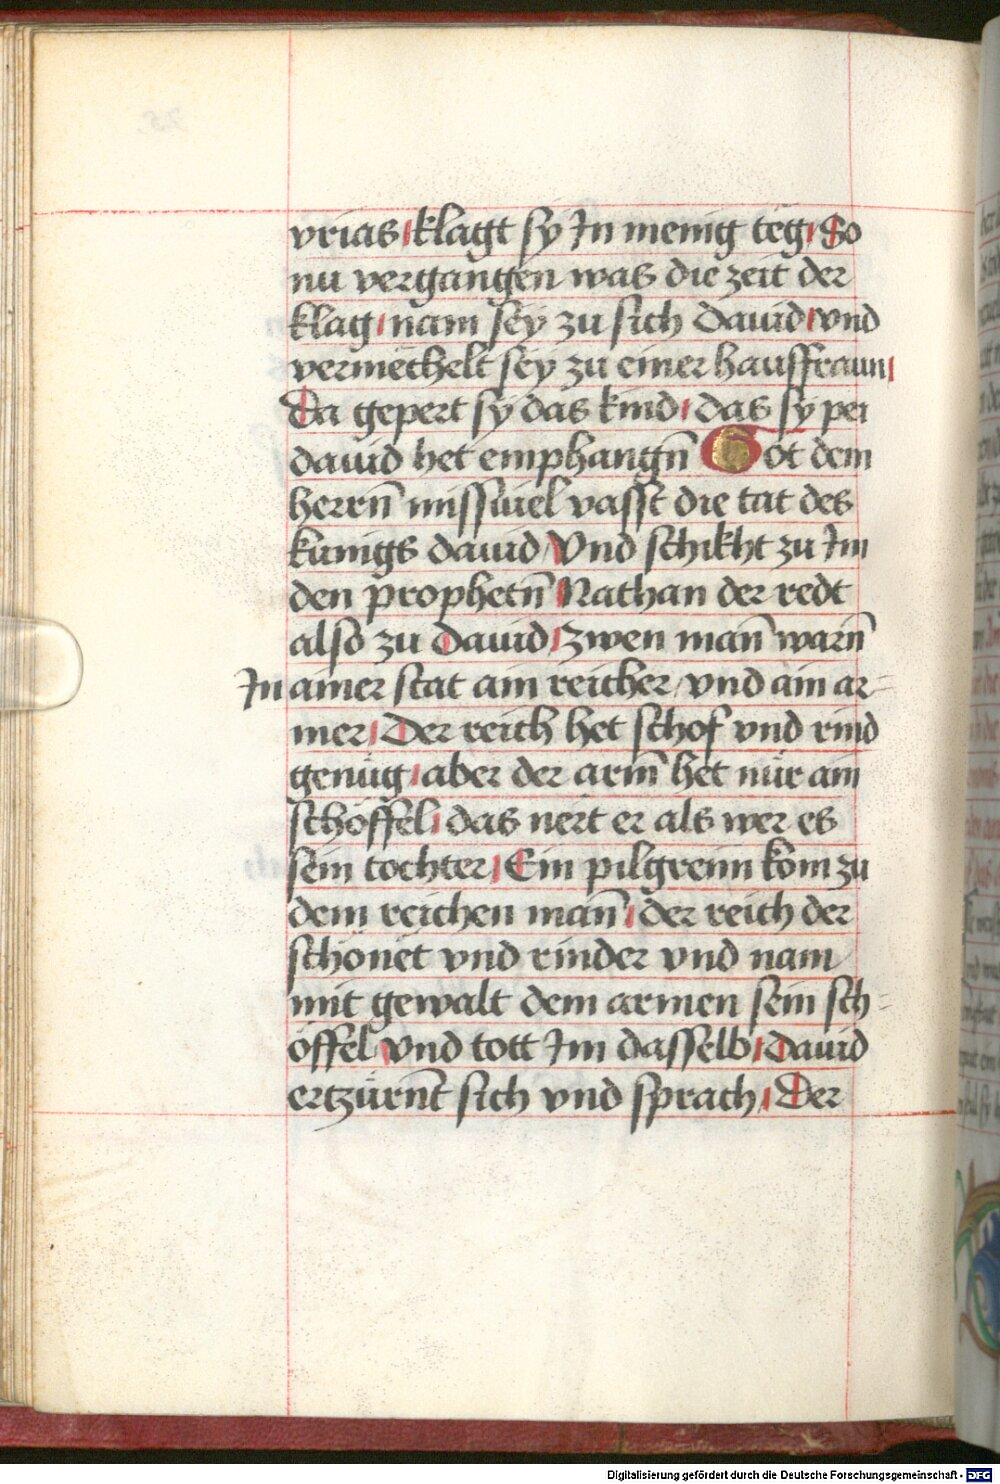 vrias klagt sy In menig teg So
nu vergangen was die zeit der
klag nam sey zu sich dauid vnd
vermechelt sey zu einer hauffraun
Da gepert sy das kind das sy pei
dauid het emphangn̄ Got dem
herrn̄ missuiel vasst die tat des
kunigs dauid Vnd schikht zu Im
den prophetn̄ Nathan der redt
also zu dauid zwen man̄ warn̄
In ainer stat ain reicher vnd ain ar=
mer Der reich het schof vnd rind
genüg aber der arm̄ het nür ain
schöffel das nert er als wer es
sein tochter Ein pilgreim kom zu
dem reichen man̄ der reich der
schönet vnd rinder vnd nam
mit gewalt dem armen sein sch=
öffel vnd tott Im dasselb Dauid
ertzürnt̄ sich vnd sprach Der
Digitalisierung gefördert durch die Deutsche Forschungsgemeinschaft - DFG